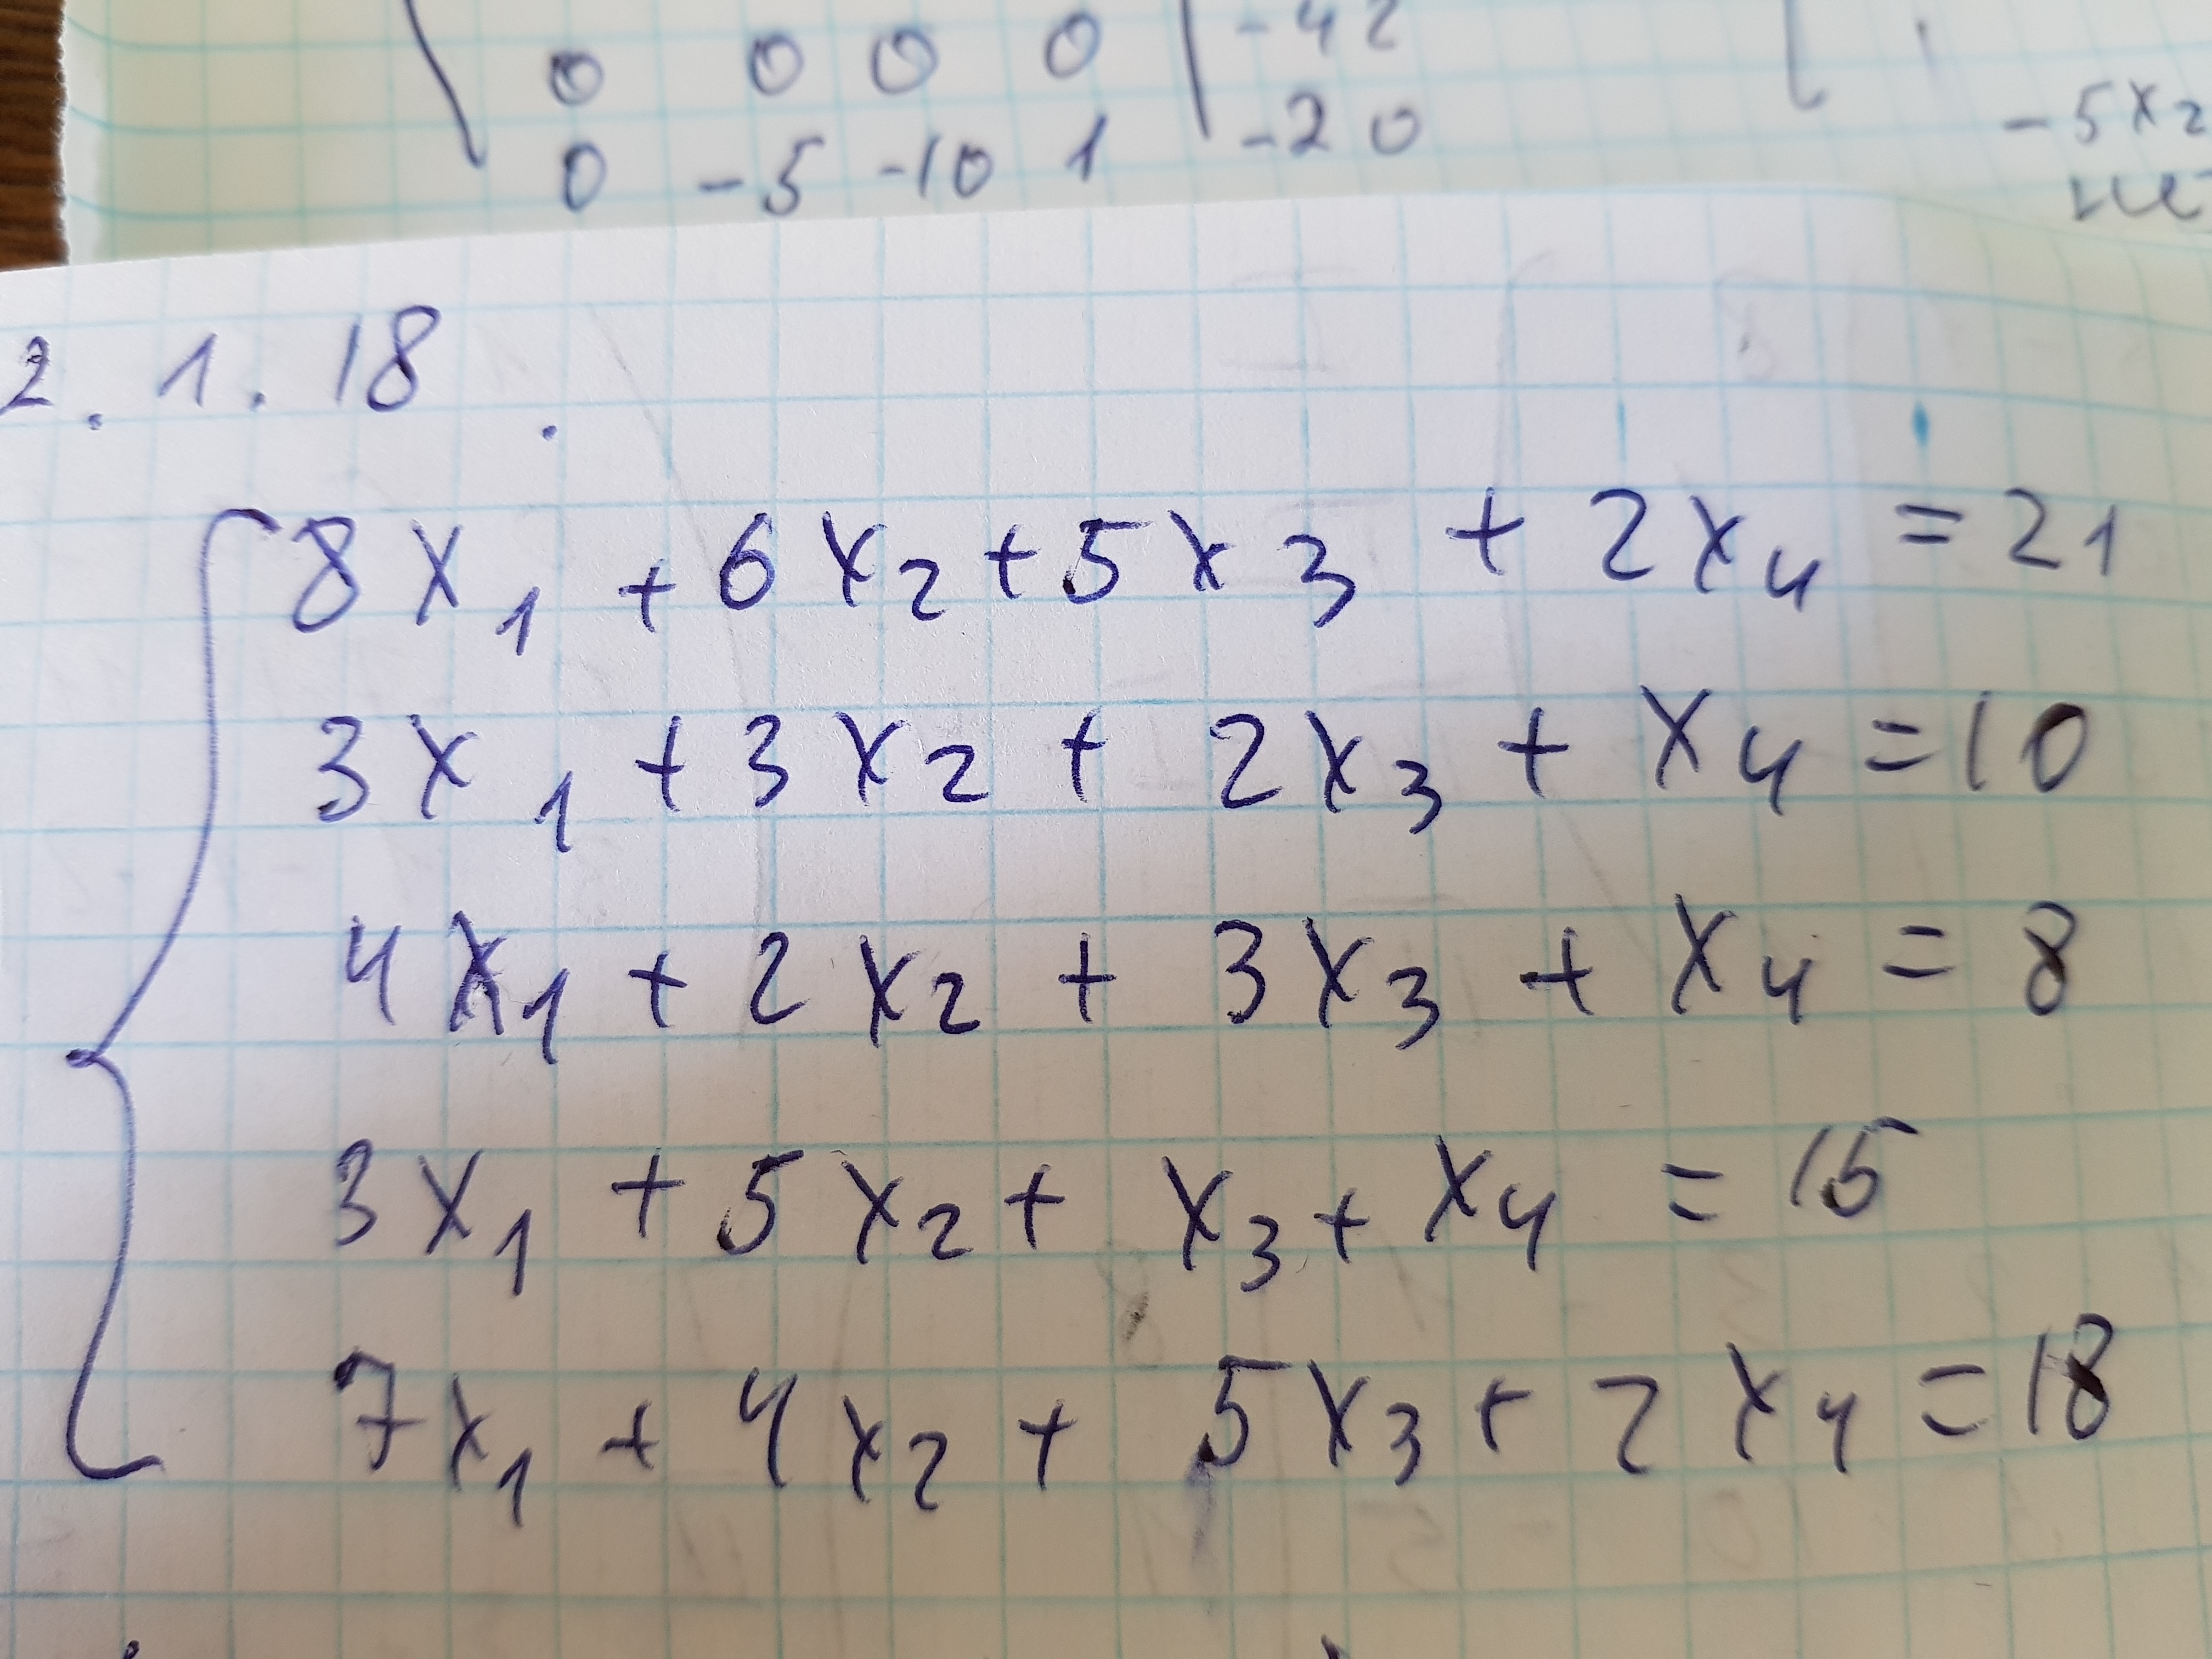 0 0 0 0 | -42
0 -5 -10 1 | -20
-5x₂
не
2.1.18.
8x₁ + 6x₂ + 5x₃ + 2x₄ = 21
3x₁ + 3x₂ + 2x₃ + x₄ = 10
4x₁ + 2x₂ + 3x₃ + x₄ = 8
3x₁ + 5x₂ + x₃ + x₄ = 15
7x₁ + 4x₂ + 5x₃ + 2x₄ = 18